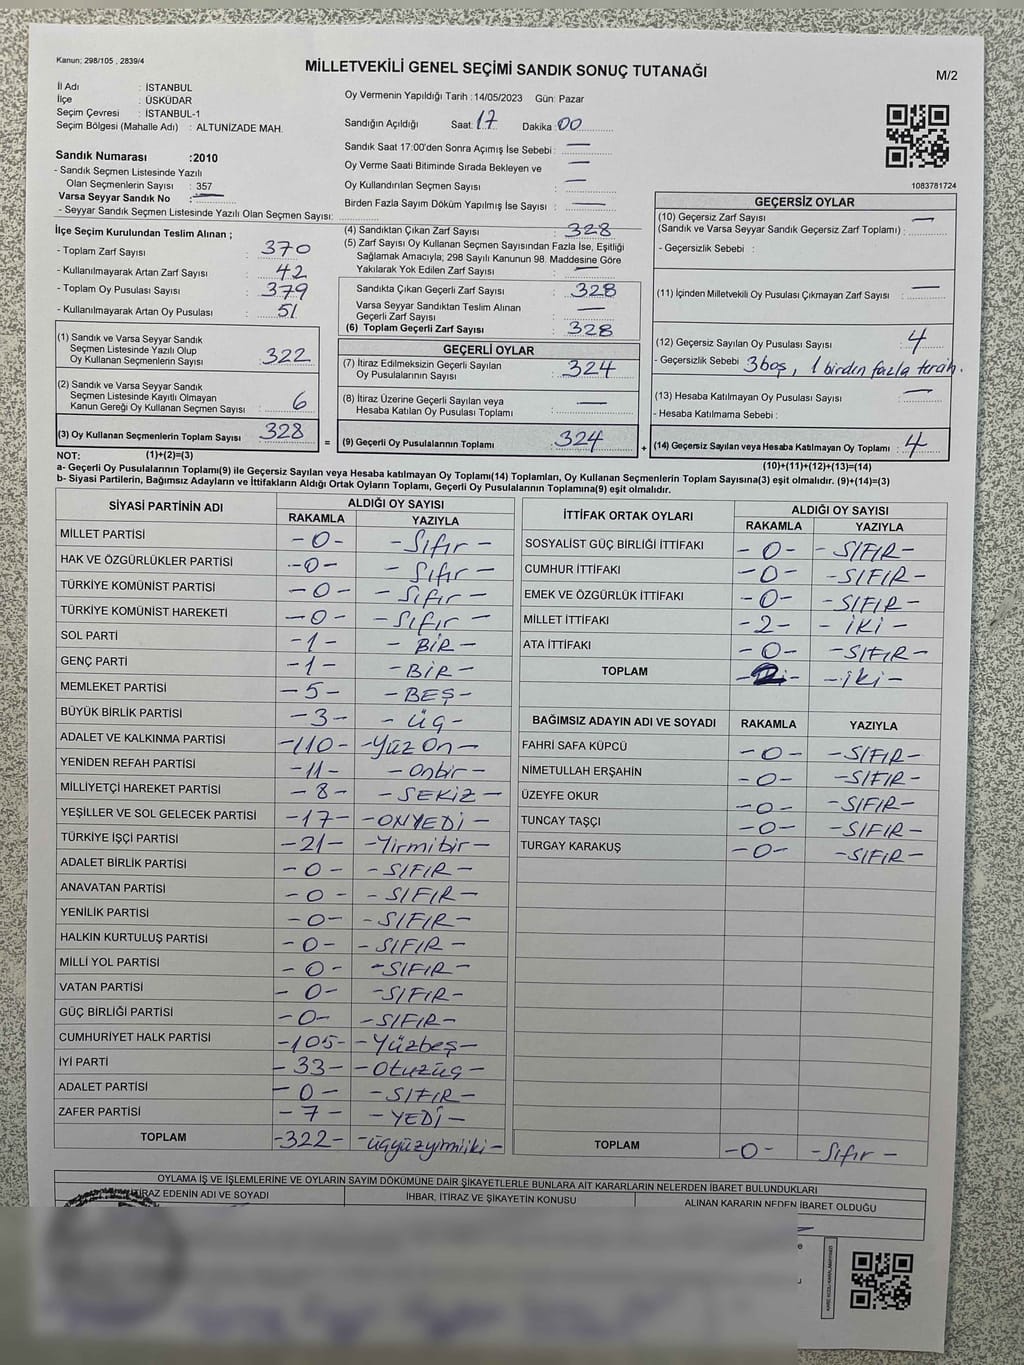 Kanun: 298/105 , 2839/4
MİLLETVEKİLİ GENEL SEÇİMİ SANDIK SONUÇ TUTANAĞI
M/2
İl Adı : İSTANBUL
İlçe : ÜSKÜDAR
Seçim Çevresi : İSTANBUL-1
Seçim Bölgesi (Mahalle Adı) : ALTUNİZADE MAH.
Sandık Numarası :2010
- Sandık Seçmen Listesinde Yazılı
Olan Seçmenlerin Sayısı : 357
Varsa Seyyar Sandık No : —
- Seyyar Sandık Seçmen Listesinde Yazılı Olan Seçmen Sayısı:
Oy Vermenin Yapıldığı Tarih :14/05/2023 Gün: Pazar
Sandığın Açıldığı Saat: 17 Dakika :00
Sandık Saat 17:00'den Sonra Açımış İse Sebebi : —
Oy Verme Saati Bitiminde Sırada Bekleyen ve —
Oy Kullandırılan Seçmen Sayısı : —
Birden Fazla Sayım Döküm Yapılmış İse Sayısı : —
1083781724
İlçe Seçim Kurulundan Teslim Alınan ;
- Toplam Zarf Sayısı : 370
- Kullanılmayarak Artan Zarf Sayısı : 42
- Toplam Oy Pusulası Sayısı : 379
- Kullanılmayarak Artan Oy Pusulası : 51
(1) Sandık ve Varsa Seyyar Sandık
Seçmen Listesinde Yazılı Olup
Oy Kullanan Seçmenlerin Sayısı : 322
(2) Sandık ve Varsa Seyyar Sandık
Seçmen Listesinde Kayıtlı Olmayan
Kanun Gereği Oy Kullanan Seçmen Sayısı : 6
(3) Oy Kullanan Seçmenlerin Toplam Sayısı : 328
(4) Sandıktan Çıkan Zarf Sayısı : 328
(5) Zarf Sayısı Oy Kullanan Seçmen Sayısından Fazla İse, Eşitliği
Sağlamak Amacıyla; 298 Sayılı Kanunun 98. Maddesine Göre
Yakılarak Yok Edilen Zarf Sayısı : —
Sandıkta Çıkan Geçerli Zarf Sayısı : 328
Varsa Seyyar Sandıktan Teslim Alınan
Geçerli Zarf Sayısı : —
(6) Toplam Geçerli Zarf Sayısı : 328
GEÇERLİ OYLAR
(7) İtiraz Edilmeksizin Geçerli Sayılan
Oy Pusulalarının Sayısı : 324
(8) İtiraz Üzerine Geçerli Sayılan veya
Hesaba Katılan Oy Pusulası Toplamı : —
= (9) Geçerli Oy Pusulalarının Toplamı : 324
GEÇERSİZ OYLAR
(10) Geçersiz Zarf Sayısı —
(Sandık ve Varsa Seyyar Sandık Geçersiz Zarf Toplamı) :
- Geçersizlik Sebebi :
(11) İçinden Milletvekili Oy Pusulası Çıkmayan Zarf Sayısı : —
(12) Geçersiz Sayılan Oy Pusulası Sayısı : 4
- Geçersizlik Sebebi : 3 boş, 1 birden fazla tercih.
(13) Hesaba Katılmayan Oy Pusulası Sayısı : —
- Hesaba Katılmama Sebebi :
+ (14) Geçersiz Sayılan veya Hesaba Katılmayan Oy Toplamı : 4
NOT: (1)+(2)=(3)
(10)+(11)+(12)+(13)=(14)
a- Geçerli Oy Pusulalarının Toplamı(9) ile Geçersiz Sayılan veya Hesaba katılmayan Oy Toplamı(14) Toplamları, Oy Kullanan Seçmenlerin Toplam Sayısına(3) eşit olmalıdır. (9)+(14)=(3)
b- Siyasi Partilerin, Bağımsız Adayların ve İttifakların Aldığı Ortak Oyların Toplamı, Geçerli Oy Pusulalarının Toplamına(9) eşit olmalıdır.
SİYASİ PARTİNİN ADI ALDIĞI OY SAYISI
RAKAMLA YAZIYLA
MİLLET PARTİSİ -0- -Sıfır-
HAK VE ÖZGÜRLÜKLER PARTİSİ -0- -Sıfır-
TÜRKİYE KOMÜNİST PARTİSİ -0- -Sıfır-
TÜRKİYE KOMÜNİST HAREKETİ -0- -Sıfır-
SOL PARTİ -1- -BİR-
GENÇ PARTİ -1- -BİR-
MEMLEKET PARTİSİ -5- -BEŞ-
BÜYÜK BİRLİK PARTİSİ -3- -ÜÇ-
ADALET VE KALKINMA PARTİSİ -110- -Yüz On-
YENİDEN REFAH PARTİSİ -11- -Onbir-
MİLLİYETÇİ HAREKET PARTİSİ -8- -SEKİZ-
YEŞİLLER VE SOL GELECEK PARTİSİ -17- -ONYEDİ-
TÜRKİYE İŞÇİ PARTİSİ -21- -Yirmibir-
ADALET BİRLİK PARTİSİ -0- -SIFIR-
ANAVATAN PARTİSİ -0- -SIFIR-
YENİLİK PARTİSİ -0- -SIFIR-
HALKIN KURTULUŞ PARTİSİ -0- -SIFIR-
MİLLİ YOL PARTİSİ -0- -SIFIR-
VATAN PARTİSİ -0- -SIFIR-
GÜÇ BİRLİĞİ PARTİSİ -0- -SIFIR-
CUMHURİYET HALK PARTİSİ -105- -Yüzbeş-
İYİ PARTİ -33- -Otuzüç-
ADALET PARTİSİ -0- -SIFIR-
ZAFER PARTİSİ -7- -YEDİ-
TOPLAM -322- -üçyüzyirmiiki-
İTTİFAK ORTAK OYLARI ALDIĞI OY SAYISI
RAKAMLA YAZIYLA
SOSYALİST GÜÇ BİRLİĞİ İTTİFAKI -0- -SIFIR-
CUMHUR İTTİFAKI -0- -SIFIR-
EMEK VE ÖZGÜRLÜK İTTİFAKI -0- -SIFIR-
MİLLET İTTİFAKI -2- -İKİ-
ATA İTTİFAKI -0- -SIFIR-
TOPLAM -2- -İKİ-
BAĞIMSIZ ADAYIN ADI VE SOYADI RAKAMLA YAZIYLA
FAHRİ SAFA KÜPCÜ -0- -SIFIR-
NİMETULLAH ERŞAHİN -0- -SIFIR-
ÜZEYFE OKUR -0- -SIFIR-
TUNCAY TAŞÇI -0- -SIFIR-
TURGAY KARAKUŞ -0- -SIFIR-
TOPLAM -0- -Sıfır-
OYLAMA İŞ VE İŞLEMLERİNE VE OYLARIN SAYIM DÖKÜMÜNE DAİR ŞİKAYETLERLE BUNLARA AİT KARARLARIN NELERDEN İBARET BULUNDUKLARI
İTİRAZ EDENİN ADI VE SOYADI İHBAR, İTİRAZ VE ŞİKAYETİN KONUSU ALINAN KARARIN NEDEN İBARET OLDUĞU